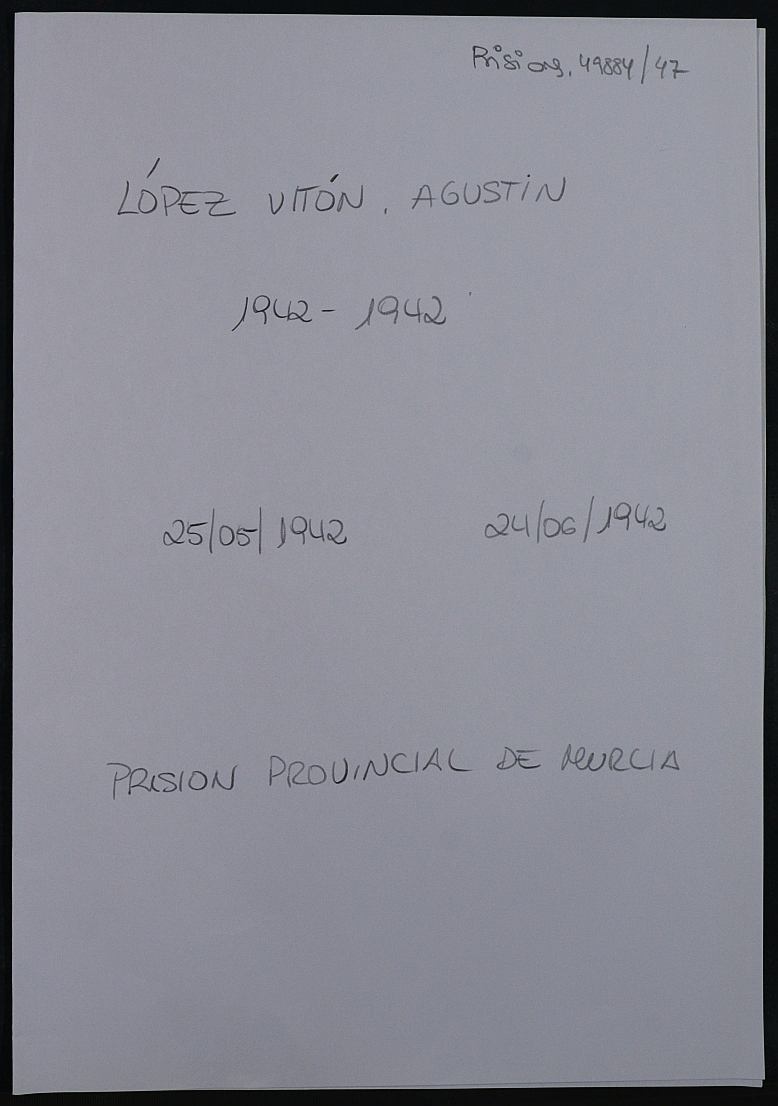 Prisiones, 49884/47
LÓPEZ VITÓN, AGUSTÍN
1942 - 1942
25/05/1942 24/06/1942
PRISION PROVINCIAL DE MURCIA